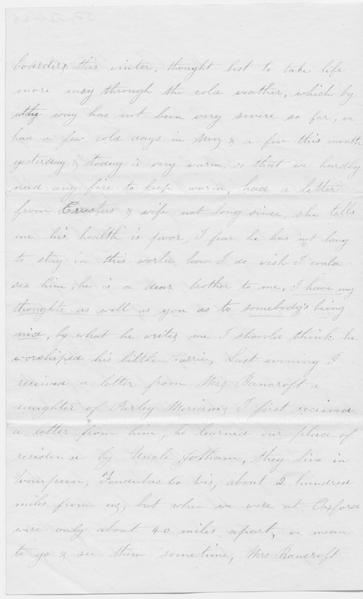 boarders this winter, thought best to take life
more easy through the cold weather, which by
the way has not been very severe so far, we
had a few cold days in Nov & a few this month
yesterday & today is very warm, so that we hardly
need any fire to keep warm, had a letter
from & wife not long since, she tells
me his health is poor, I fear he has not long
to stay in this world, how I do wish I could
see him, he is a dear brother to me, I have my
thoughts as well as you as to somebody's being
nice, by what he writes me I should think he
worshiped his little Carrie, Last evening I
received a letter from Mrs Bancroft a
daughter of I first received
a letter from him, he learned our place of
residence by Uncle Jotham, they live in
Fondulac Co Wis, about 2 hundred
miles from us, but when we were at Oxford
were only about 40 miles apart, we mean
to go & see them sometime, Mrs Bancroft